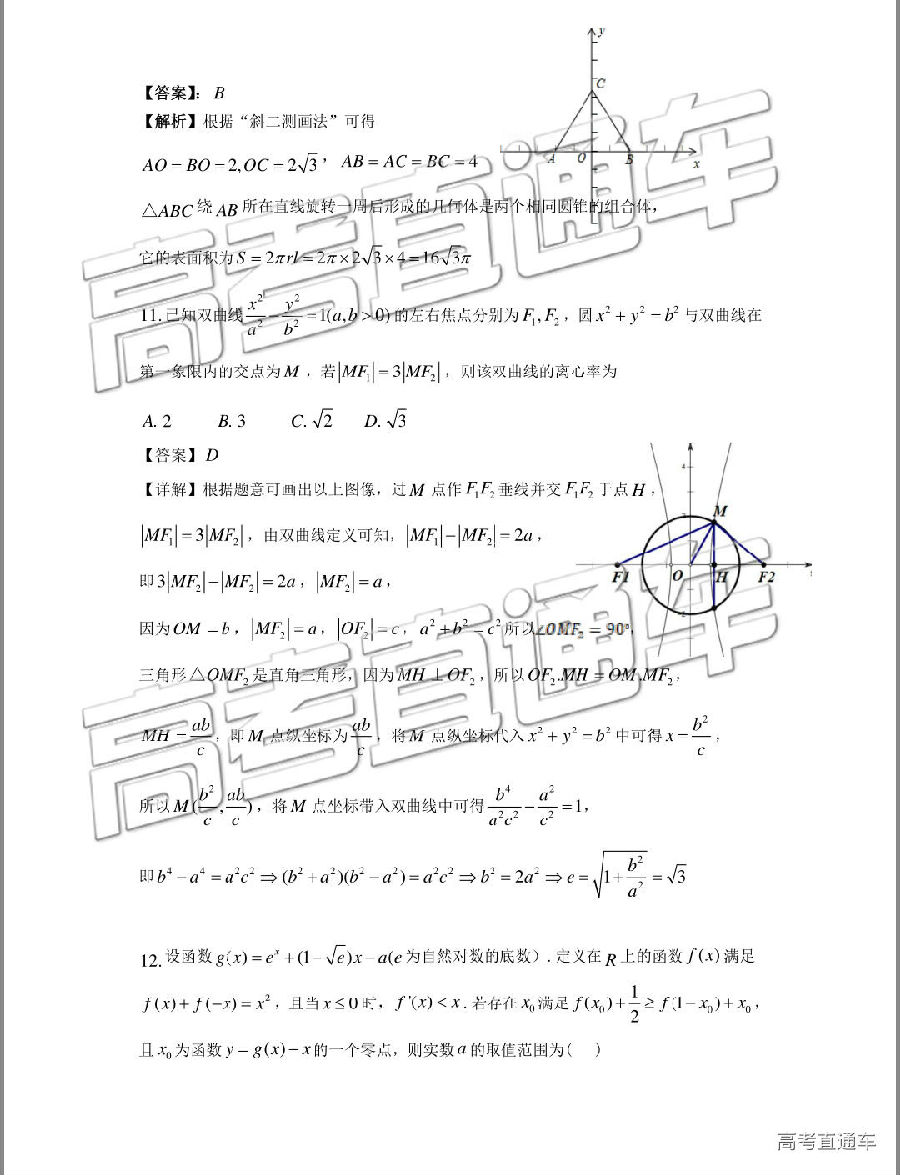 【答案】：B
【解析】根据“斜二测画法”可得
AO=BO=2,OC=2√3， AB=AC=BC=4
△ABC绕AB所在直线旋转一周后形成的几何体是两个相同圆锥的组合体，
它的表面积为S=2πrl=2π×2√3×4=16√3π
y
C
A O B x
11.已知双曲线x²/a²-y²/b²=1(a,b>0)的左右焦点分别为F₁,F₂，圆x²+y²=b²与双曲线在
第一象限内的交点为M，若|MF₁|=3|MF₂|，则该双曲线的离心率为
A. 2 B. 3 C. √2 D. √3
【答案】D
【详解】根据题意可画出以上图像，过M点作F₁F₂垂线并交F₁F₂于点H，
|MF₁|=3|MF₂|，由双曲线定义可知，|MF₁|-|MF₂|=2a，
即3|MF₂|-|MF₂|=2a，|MF₂|=a，
因为OM=b，|MF₂|=a，|OF₂|=c，a²+b²=c²所以∠OMF₂=90°，
三角形△OMF₂是直角三角形，因为MH⊥OF₂，所以OF₂.MH=OM.MF₂，
MH=ab/c，即M点纵坐标为ab/c，将M点纵坐标代入x²+y²=b²中可得x=b²/c，
所以M(b²/c,ab/c)，将M点坐标带入双曲线中可得b⁴/a²c²-a²/c²=1，
即b⁴-a⁴=a²c²⇒(b²+a²)(b²-a²)=a²c²⇒b²=2a²⇒e=√(1+b²/a²)=√3
4
M
F1 O H F2
12.设函数g(x)=eˣ+(1-√e)x-a(e为自然对数的底数）.定义在R上的函数f(x)满足
f(x)+f(-x)=x²，且当x≤0时，f'(x)<x.若存在x₀满足f(x₀)+1/2≥f(1-x₀)+x₀，
且x₀为函数y=g(x)-x的一个零点，则实数a的取值范围为( )
高考直通车
高考直通车
高考直通车